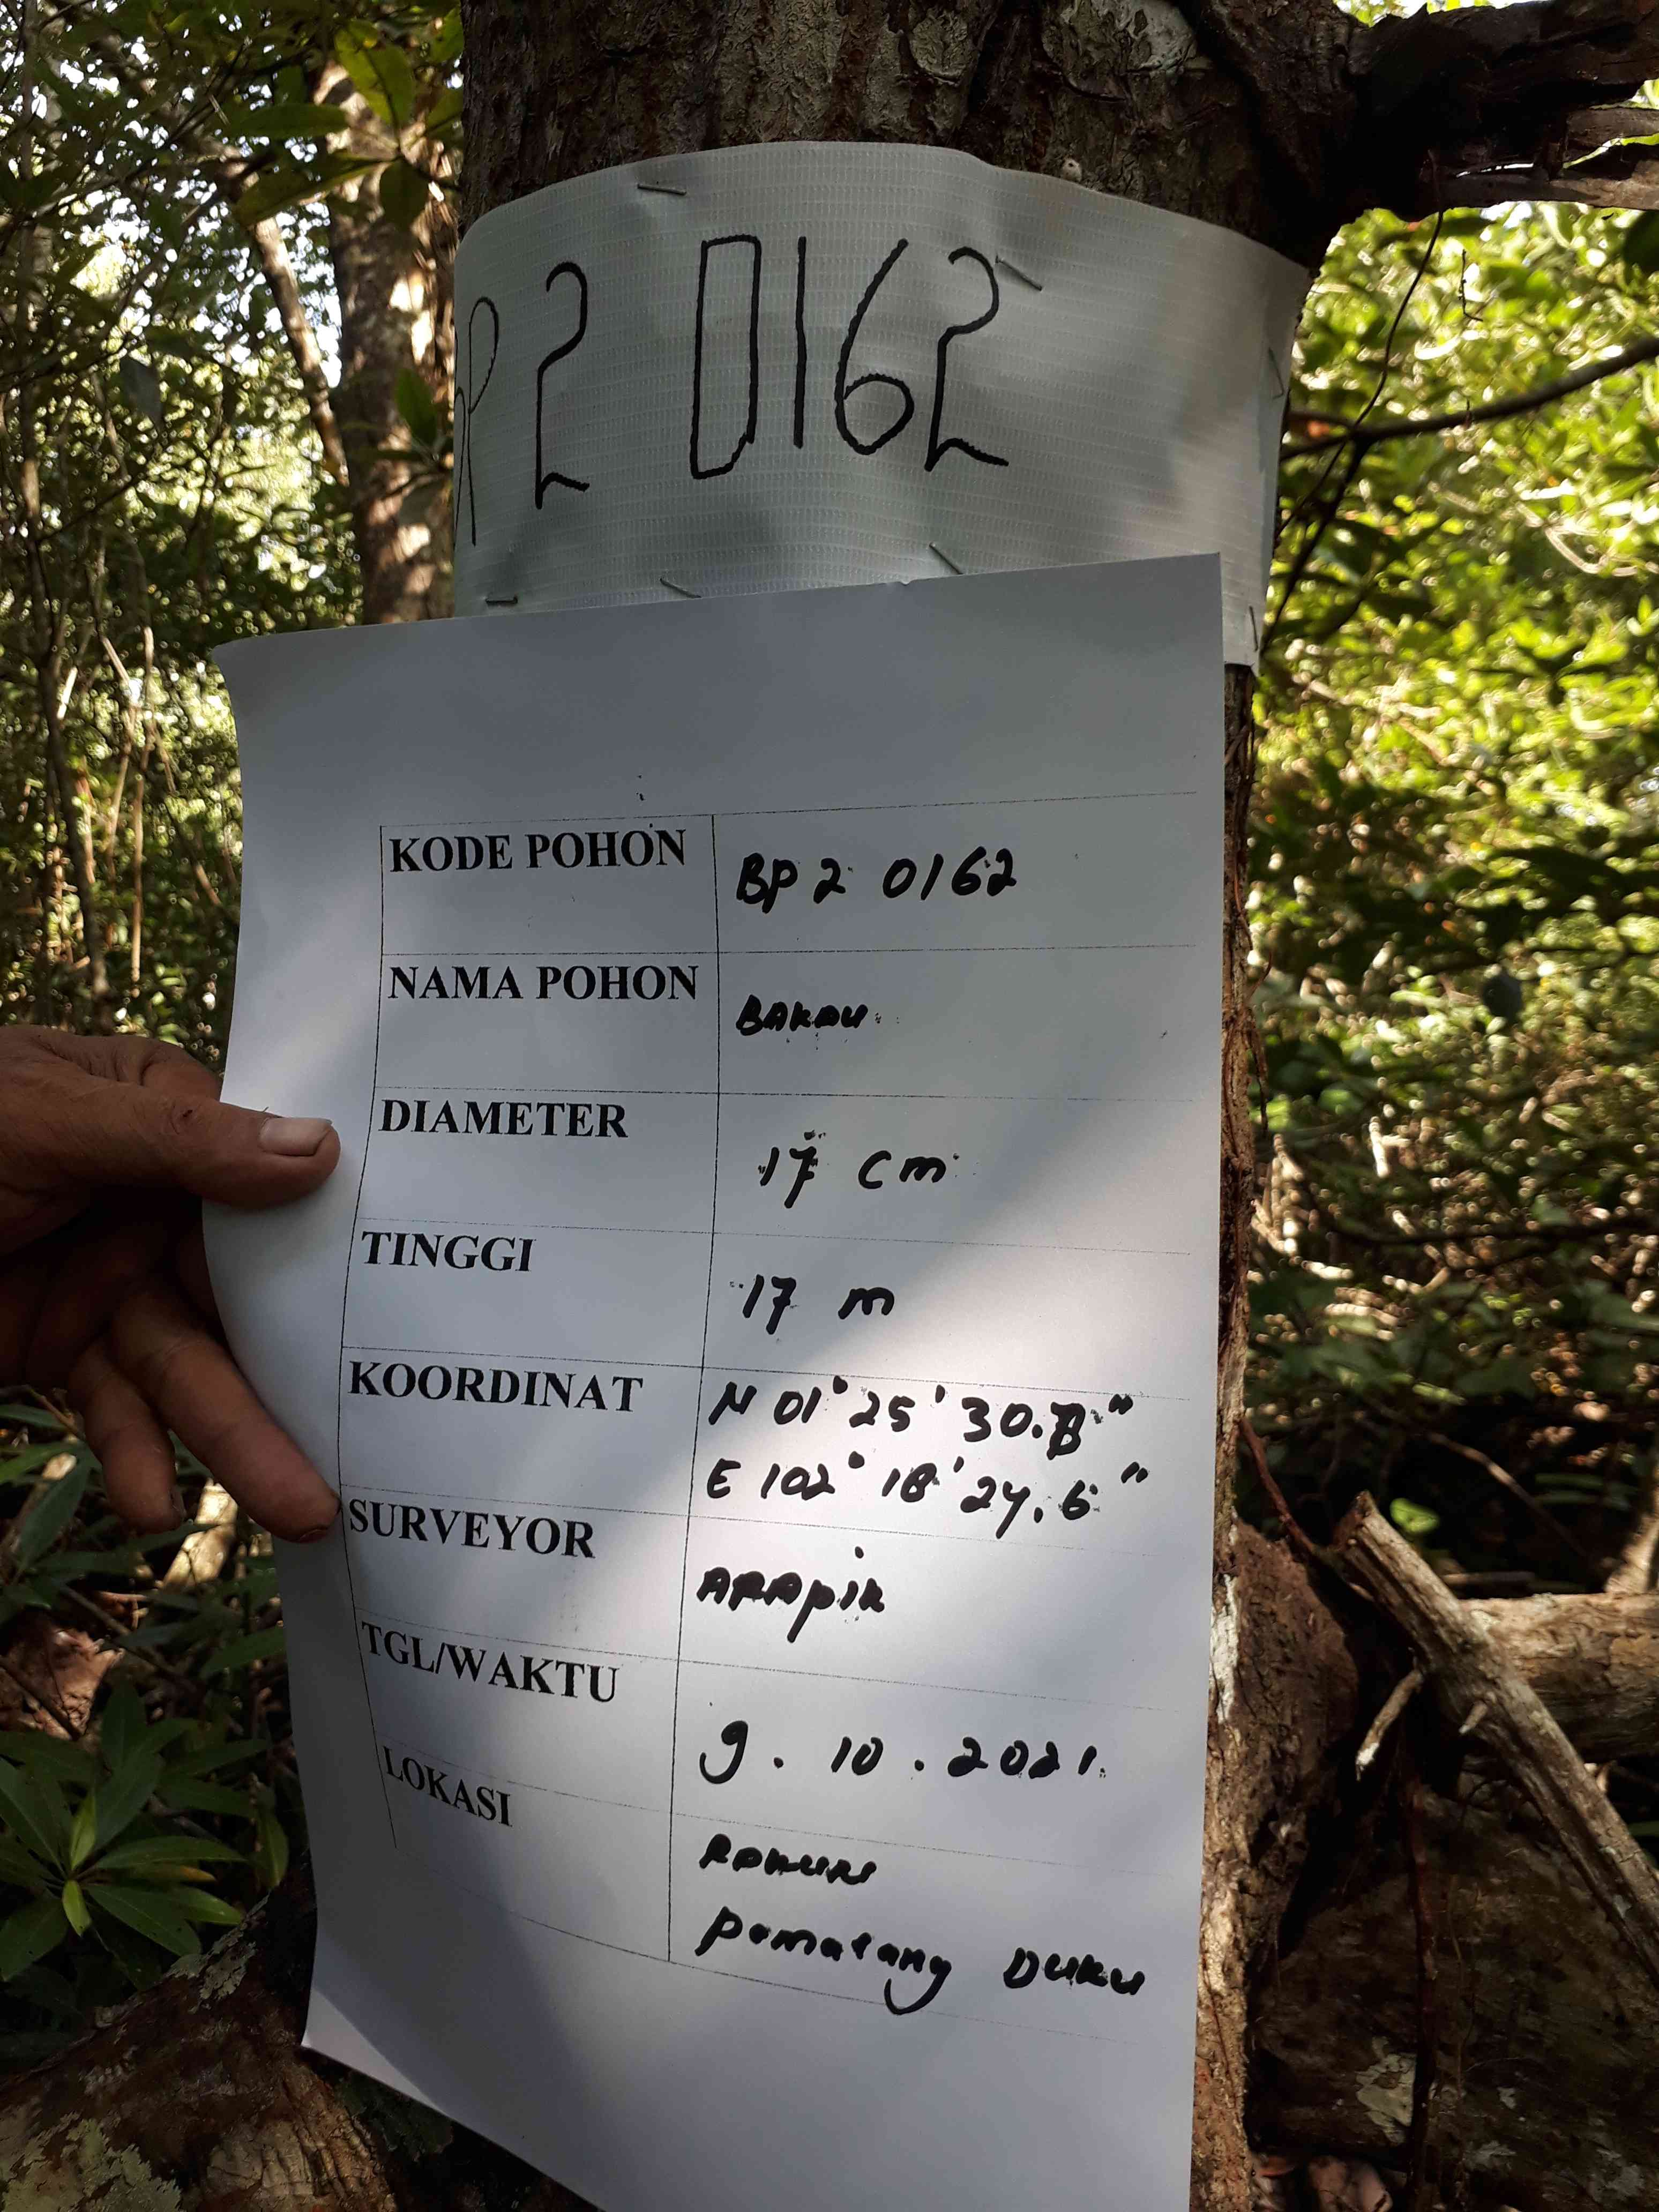 P 2 0162
KODE POHON BP 2 0162
NAMA POHON BAKAU
DIAMETER 17 cm
TINGGI 17 m
KOORDINAT N 01° 25' 30.8"
E 102° 18' 24.6"
SURVEYOR ARAPIK
TGL/WAKTU 9.10.2021.
LOKASI
Pematang Duku